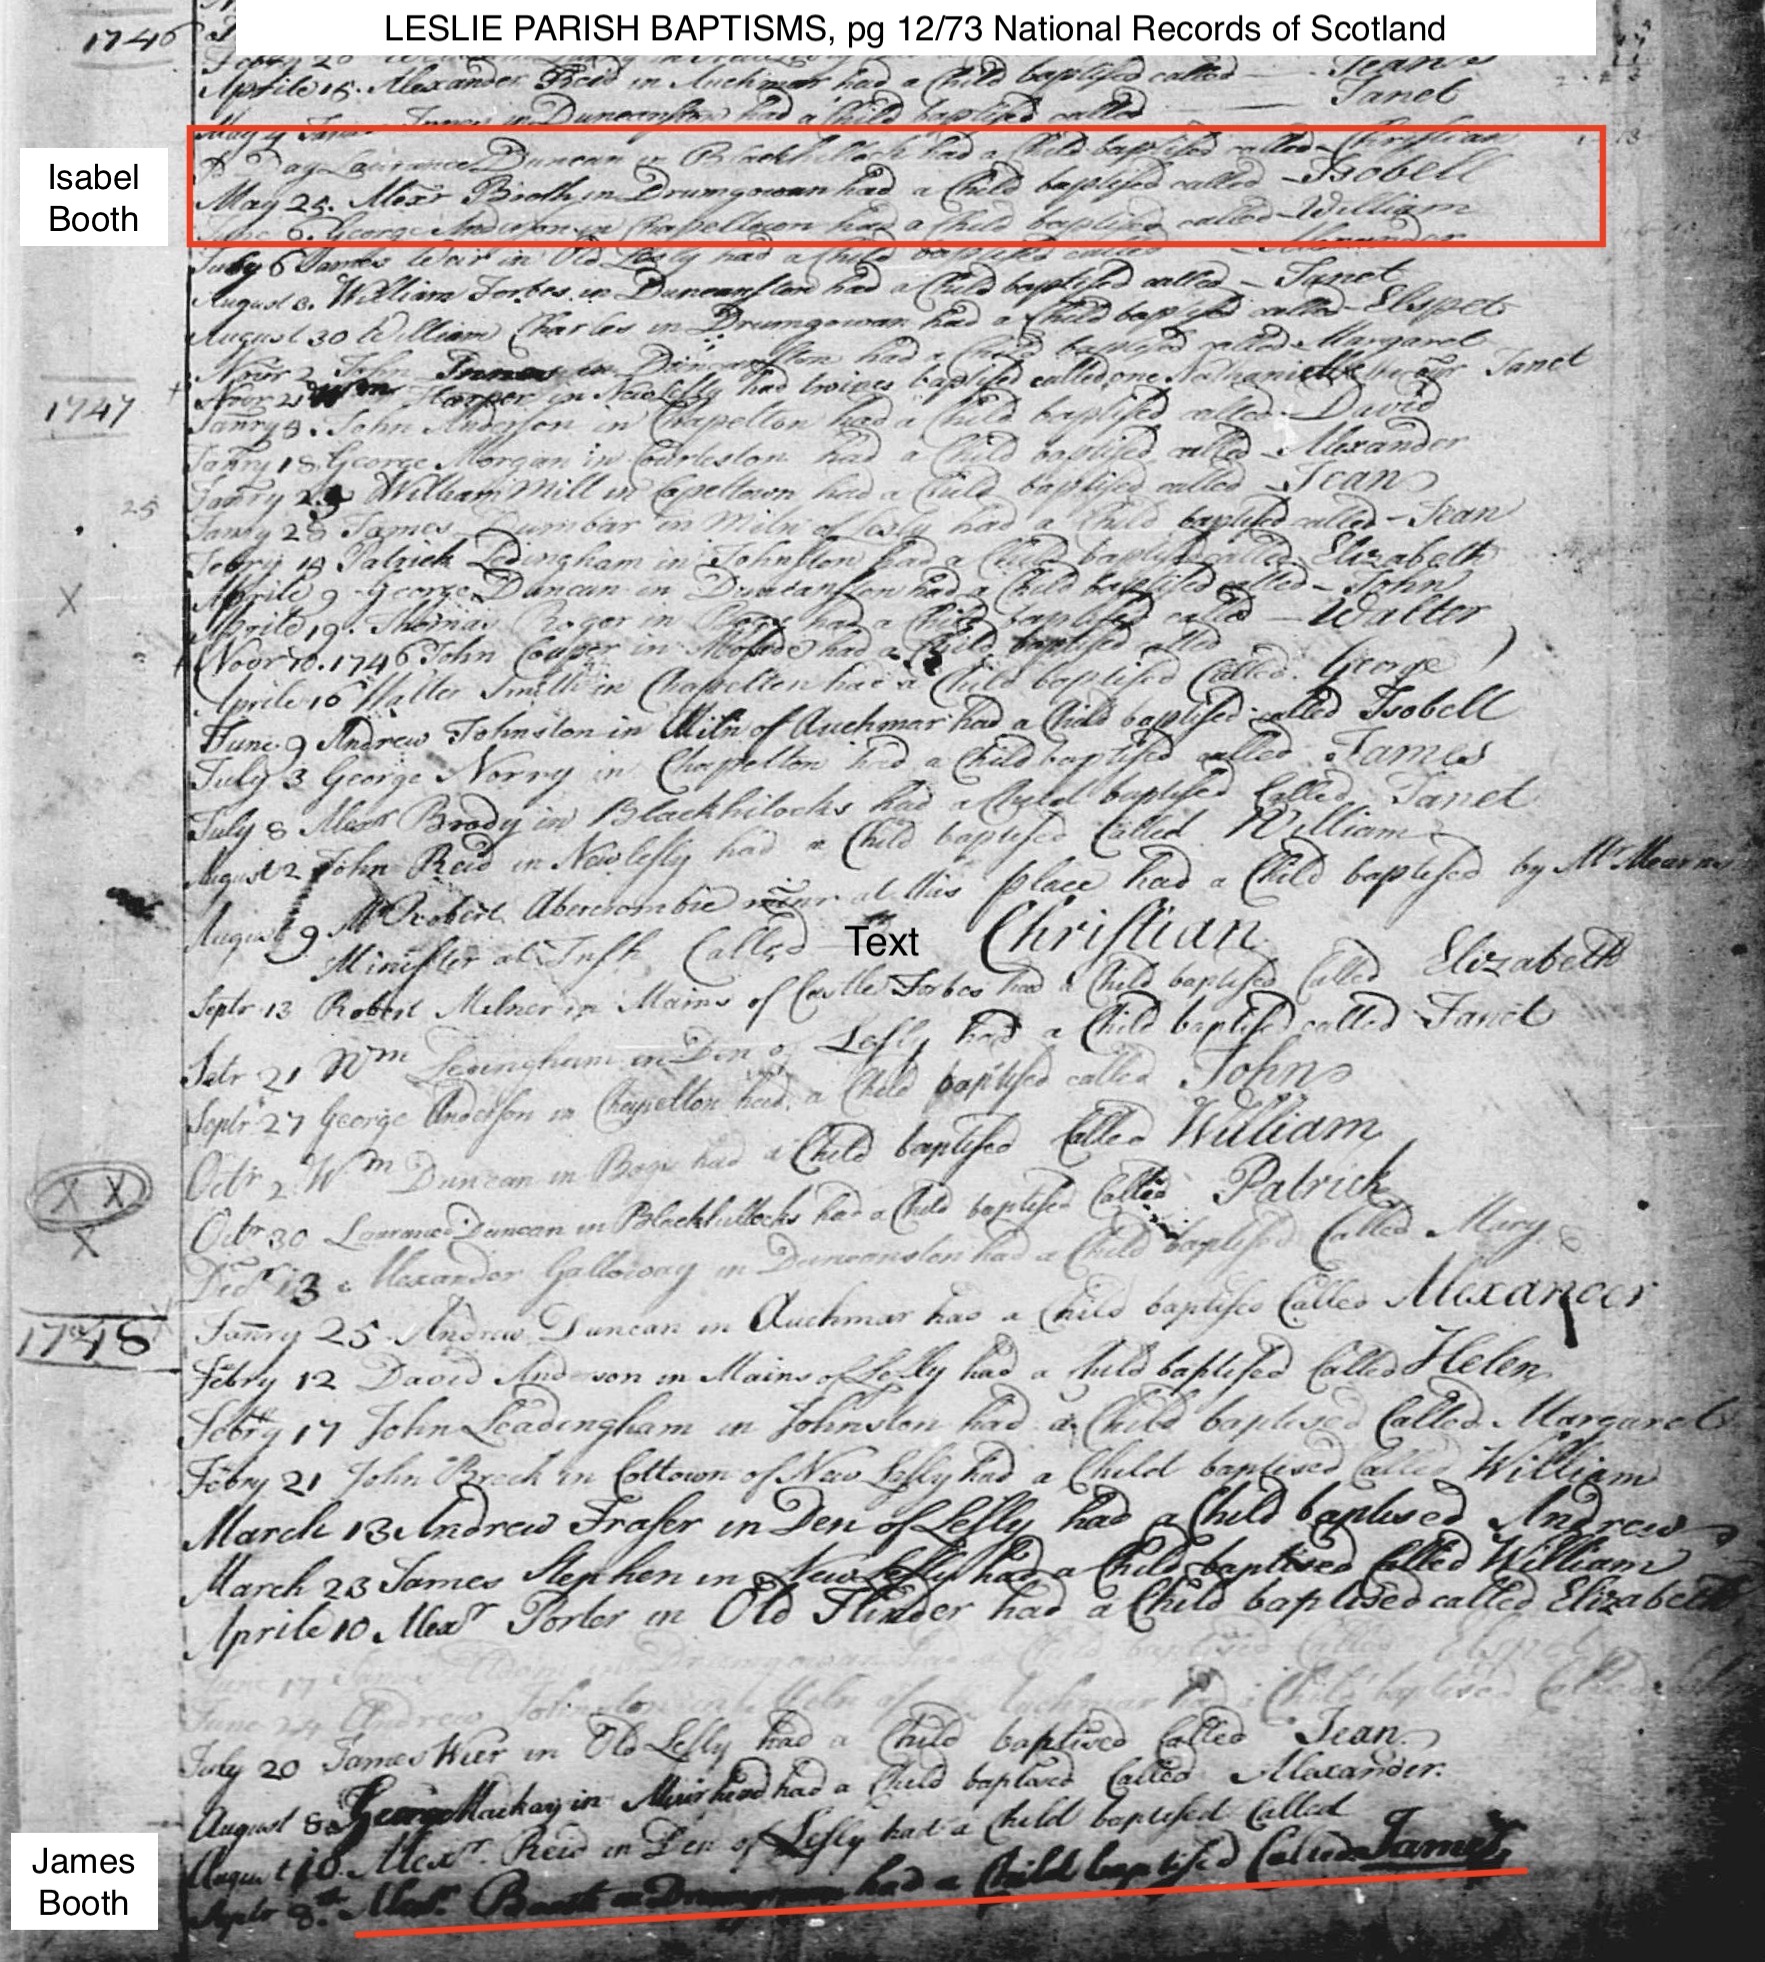 LESLIE PARISH BAPTISMS, pg 12/73 National Records of Scotland
1746
Jean
Aprile 18. Alexander Reid in Auchmar had a Child baptised called
Janet
May 4 James Innes in Duncanston had a Child baptised called
Isabel
Booth
Day Laurance Duncan in Blackhillock had a Child baptised called Christian
May 25. Alexr Booth in Drumgowan had a Child baptised called Isobell
June 6. George Anderson in Chapeltown had a Child baptised called William
July 6 James Weir in Old Lesly had a Child baptised called Alexander
August 3. William Forbes in Duncanston had a Child baptised called Janet
August 30 William Charles in Drumgowan had a Child baptised called Elspet
Novr 2 John Innes in Duncanston had a Child baptised called Margaret
Novr 21 Wm Harper in New Lesly had twines baptised called one Nathaniell Janet
1747
Janry 4. John Anderson in Chapelton had a Child baptised called David
Janry 18 George Morgan in had a Child baptised called Alexander
25
Janry William Mill in Capeltown had a Child baptised called Jean
Janry 28 James Dumbar in Miln of Lesly had a Child baptised called Jean
Febry 14 Patrick Ledingham in Johnston had a Child baptised called Elizabeth
X
Aprile 9 George Duncan in Duncanston had a Child baptised called John
Aprile 19. Thomas Roger in had a Child baptised called Walter
Novr 10. 1746 John Couper in had a Child baptised called
Aprile 16 Walter Smith in Chapelton had a Child baptised Called. George
June 9 Andrew Johnston in Miln of Auchmar had a Child baptised called Isobell
July 3 George Norry in Chapelton had a Child baptised called James
July 8 Alexr Brody in Blackhilocks had a Child baptised Called Janet
August 2 John Reid in New lesly had a Child baptised Called William
August 9 Mr Robert Abercrombie minr at this place had a Child baptised by Mr Mearns
Text
Minister at Insh Called Christian
Septr 13 Robert Milner in Mains of Castle Forbes had a Child baptised Called Elizabeth
Setr 21 Wm Ledingham in Den of Lesly had a Child baptised called Janet
Septr 27 George Anderson in Chapelton had a Child baptised called John
Octr 2 Wm Duncan in Bogs had a Child baptised Called William
X X
X
Octr 30 Laurance Duncan in Blackhillocks had a Child baptised Called Patrick
Decr 13 Alexander Galloway in Duncanston had a Child baptised Called Mary
1748
Janry 25 Andrew Duncan in Auchmar had a Child baptised Called Alexander
Febry 12 David Anderson in Mains of Lesly had a Child baptised Called Helen
Febry 17 John Leadingham in Johnston had a Child baptised Called Margaret
Febry 21 John Breck in Cottown of New Lesly had a Child baptised Called William
March 13 Andrew Fraser in Den of Lesly had a Child baptised Andrew
March 23 James Stephen in New Lesly had a Child baptised Called William
Aprile 10 Alexr Porter in Old Flinder had a Child baptised called Elizabeth
June 17 James in Drumgowan had a Child baptised Called Elspet
June 24 Andrew Johnston in Miln of Auchmar had a Child baptised Called
July 20 James Wier in Old Lesly had a Child baptised Called Jean
August 8 George Mackay in Muirhead had a Child baptised Called Alexander.
August 10. Alexr. Reid in Den of Lesly had a Child baptised Called
James
Booth
Septr 8th. Alexr. Booth in Drumgowan had a Child baptised Called James